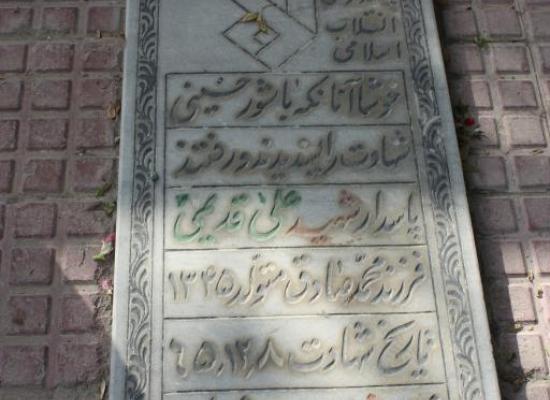 انقلاب
اسلامی
خوشا آنانکه با شور حسینی
شهادت را پسندیدند و رفتند
پاسدار شهید علی قدیمی
فرزند محمدصادق متولد ۱۳۴۵
تاریخ شهادت ۶۵٫۱۲٫۸